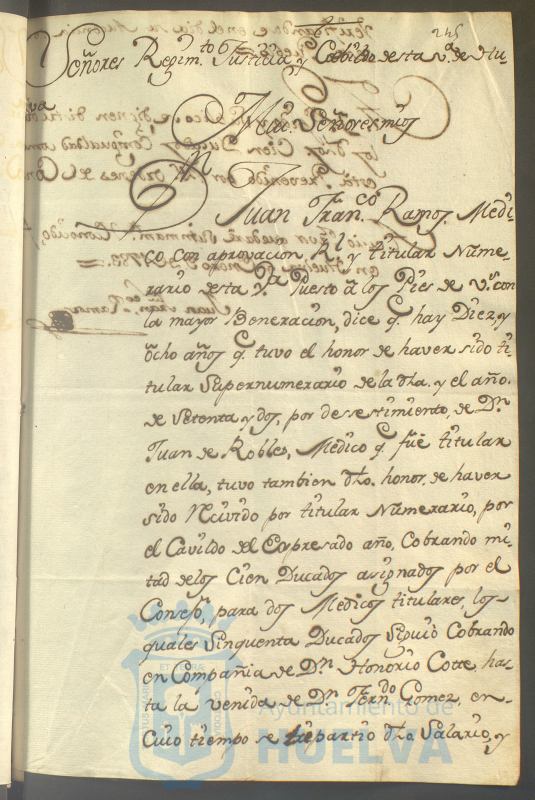 245
Señores Regim.to Justicia, y Cavildo desta V.ª de Hu-
elva
Mui Señores mios
Juan Fran.co Ramos, Medi-
co con aprovacion R.l y titular Nume-
rario desta V.ª Puesto á los Pies de V.s con
la mayor Beneracion, dice q.e hay Diez, y
ocho años q.e tuvo el honor de haver sido ti-
tular Supernumerario de la dha. y el año.
de Setenta y dos, por desestimiento, de D.n
Juan de Robles, Medico q.e fué titular
en ella, tuvo tambien dho. honor, de haver
sido Recivido por titular Numerario, por
el Cavildo del Expresado año, Cobrando mi-
tad de los Cien Ducados asignados por el
Consejo, para dos Medicos titulares, los-
quales Sinquenta Ducados Siguió Cobrando
en Compañia de D.n Honorio Cotte has-
ta la venida de D.n Fern.do Gomez, en-
Cuio tiempo se repartio dho. Salario, y
Ayuntamiento de
HUELVA